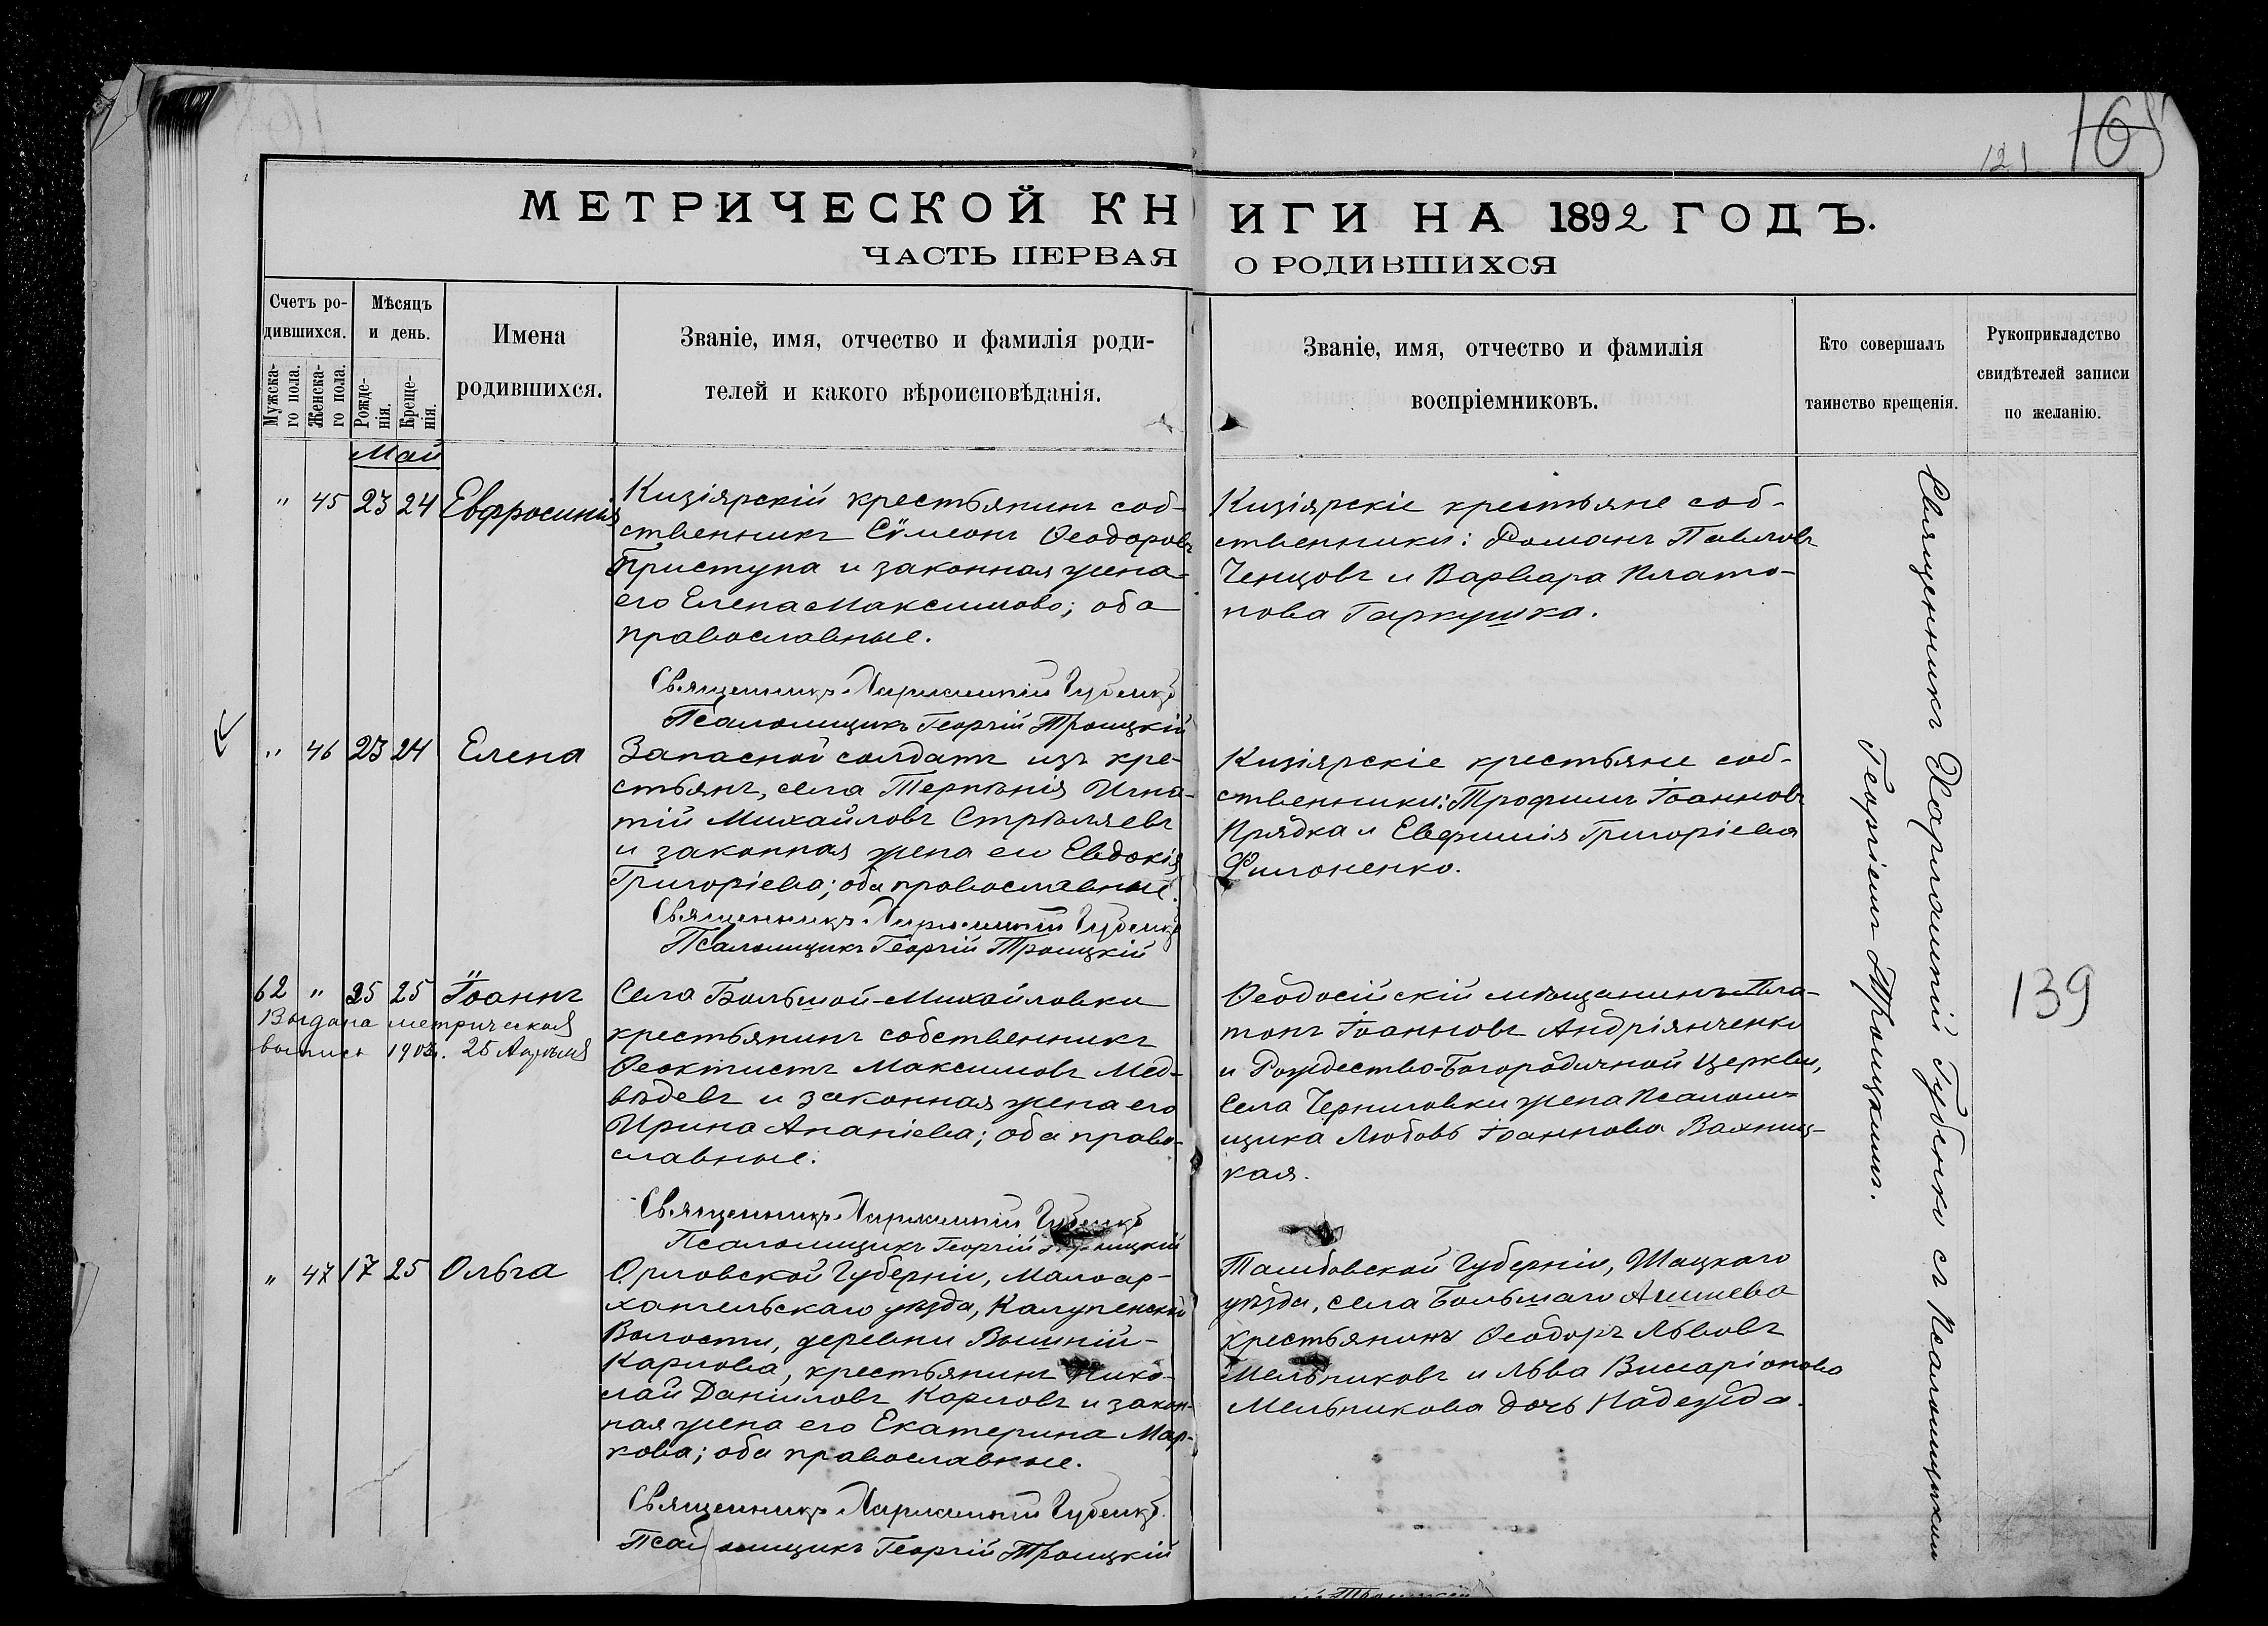 165
121
МЕТРИЧЕСКОЙ КНИГИ НА 1892 ГОДЪ.
ЧАСТЬ ПЕРВАЯ О РОДИВШИХСЯ
Счетъ ро-
дившихся.
Мужска-
го пола.
Женска-
го пола.
Мѣсяцъ
и день.
Рожде-
нія.
Креще-
нія.
Имена
родившихся.
Званіе, имя, отчество и фамилія роди-
телей и какого вѣроисповѣданія.
Званіе, имя, отчество и фамилія
воспріемниковъ.
Кто совершалъ
таинство крещенія.
Рукоприкладство
свидѣтелей записи
по желанію.
Май
" 45 23 24 Евфросинія
Кизіярскій крестьянинъ соб-
ственникъ Сѵмеонъ Ѳеодоровъ
Приступа и законная жена
его Елена Максимова; оба
православные.
Священникъ Харлампій Губенко
Псаломщикъ Георгій Троицкій
Кизіярскіе крестьяне соб-
ственники: Романъ Павловъ
Ченцовъ и Варвара Плато-
нова Гаркушка.
" 46 23 24 Елена
Запасной солдатъ изъ кре-
стьянъ, села Терпѣнія Игна-
тій Михайловъ Стрѣляевъ
и законная жена его Евдокія
Григоріева; оба православные.
Священникъ Харлампій Губенко
Псаломщикъ Георгій Троицкій
Кизіярскіе крестьяне соб-
ственники: Трофимъ Іоанновъ
Прядка и Евфимія Григоріева
Филоненко.
62 " 25 25 Іоаннъ
Выдана метрическая
выпись 1903г. 25 Апрѣля
Села Большой-Михайловки
крестьянинъ собственникъ
Ѳеоктистъ Максимовъ Мед-
вѣдевъ и законная жена его
Ирина Ананіева; оба право-
славные.
Священникъ Харлампій Губенко
Псаломщикъ Георгій Троицкій
Ѳеодосійскій мѣщанинъ Пла-
тонъ Іоанновъ Андріянченко
и Рождество-Богородичной Церкви,
Села Черниговки жена Псалом-
щика Любовь Іоаннова Вахниц-
кая.
" 47 17 25 Ольга
Орловской Губерніи, Малоар-
хангельскаго уѣзда,
Волости, деревни Вышній-
Карлова, крестьянинъ Нико-
лай Даніиловъ Карловъ и закон-
ная жена его Екатерина Мар-
кова; оба православные.
Священникъ Харлампій Губенко
Псаломщикъ Георгій Троицкій
Тамбовской Губерніи, Шацкаго
уѣзда, села Большаго
крестьянинъ Ѳеодоръ Львовъ
Мельниковъ и Льва Виссаріонова
Мельникова дочь Надежда.
Священникъ Харлампій Губенко съ Псаломщикомъ
Георгіемъ Троицкимъ.
139